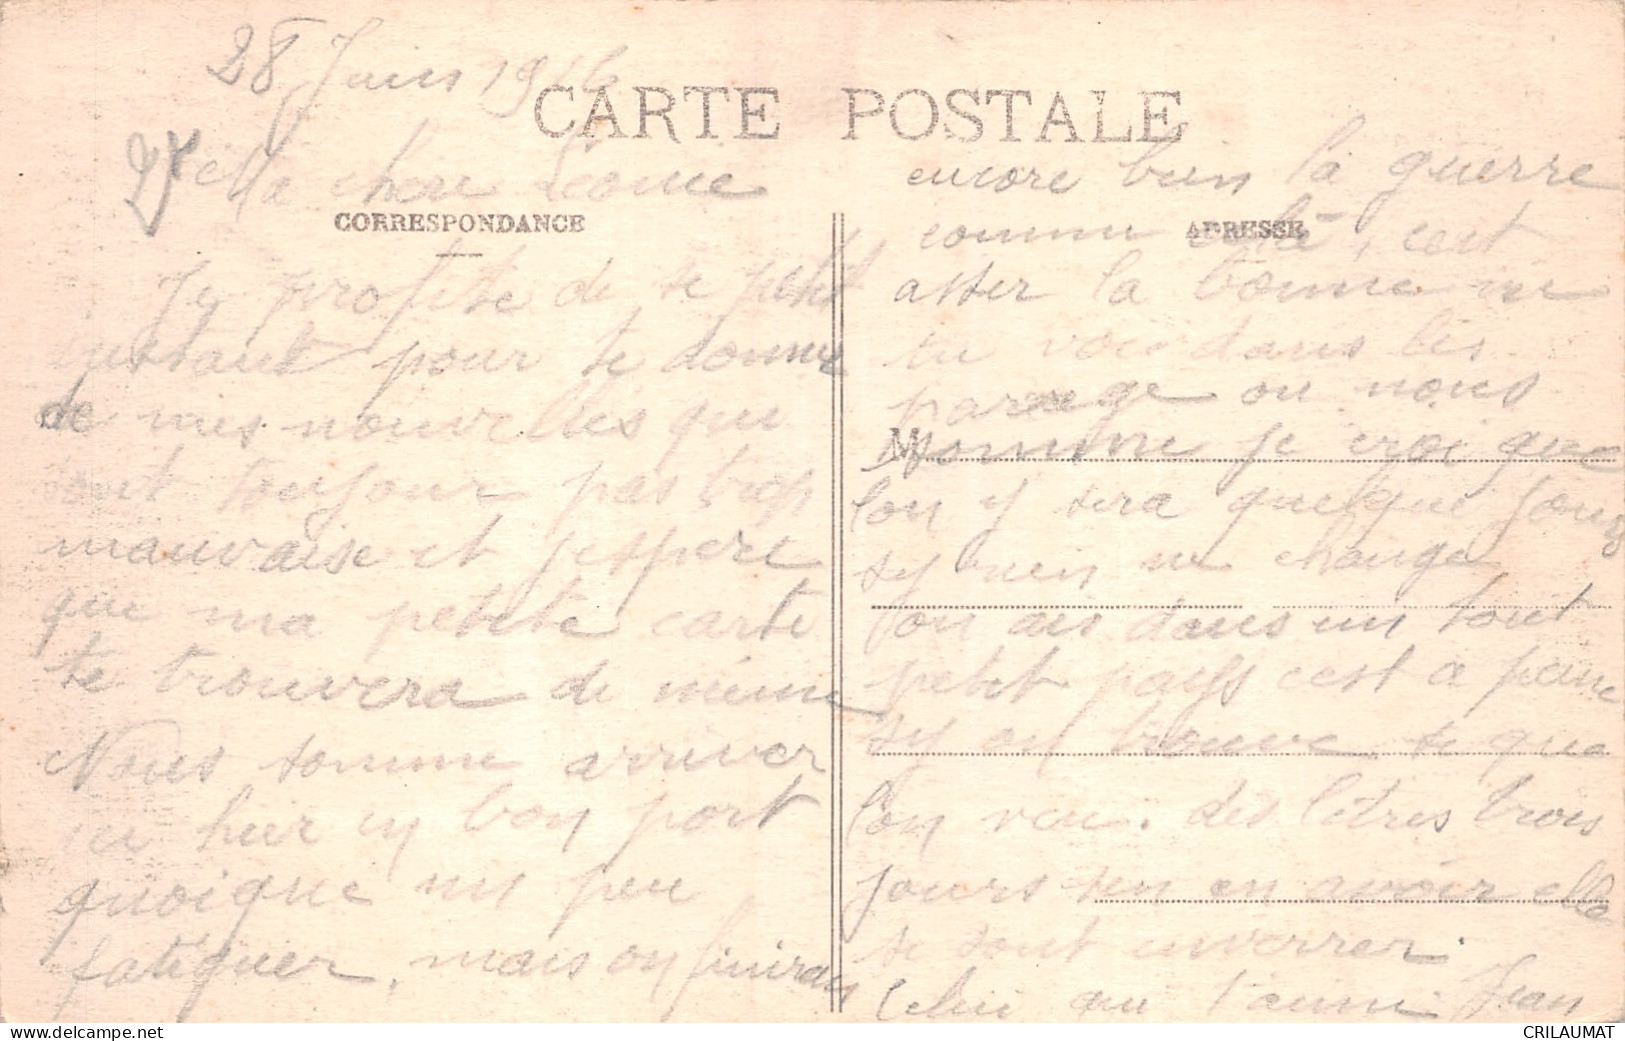 28 Juin 1916
CARTE POSTALE
Ma chere Leonie
CORRESPONDANCE
Je profite de se petit
instant pour te donner
de mes nouvelles qui
sont toujour pas trop
mauvaise et j'espere
que ma petite carte
te trouvera de meme
Nous somme arriver
ier hier en bon port
quoique un peu
fatiguer, mais on finiras
encore bien la guerre
ADRESSE
comme cela, cest
asser la bonne vie
tu vois dans les
parage ou nous
M
somme je croi que
lon y sera quelque jours
sy rien ne change
fon ais dans un tout
petit pays cest a peine
sy on trouve se que
lon veu. des letres trois
jours sen en avoir elle
se sont
Celui qui t'aime Jean
CRILAUMAT